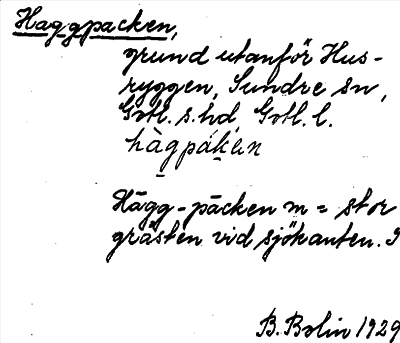 Haggpacken,
grund utanför Hus-
ryggen, Sundre sn,
Gotl. s. hd, Gotl. l.
hàgpáken
Hägg-päcken m = stor
gråsten vid sjökanten.
B. Bolin 1929